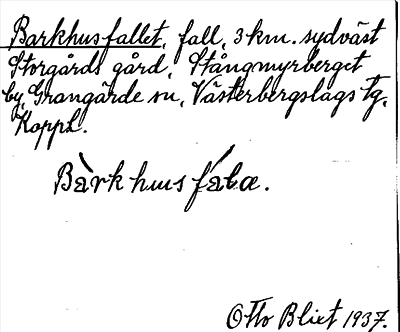 Barkhusfallet, fall, 3 km. sydväst
Storgårds gård, Stångmyrberget
by, Grangärde sn, Västerbergslags tg,
Kopph.
Bàrkhusfála.
Otto Blixt 1937.